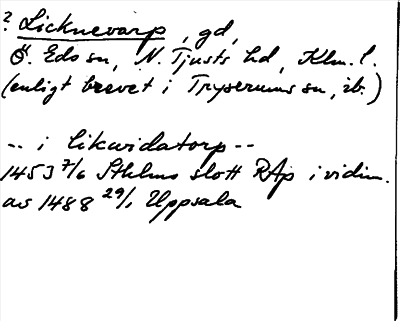 ? Licknevarp, gd,
Ö. Eds sn, N. Tjusts hd, Klm. l.
(enligt brevet i Tryserums sn, ib.)
-- i likvidatorp --
1453 7/6 Sthlms slott RAp i vidim.
av 1488 29/1 Uppsala